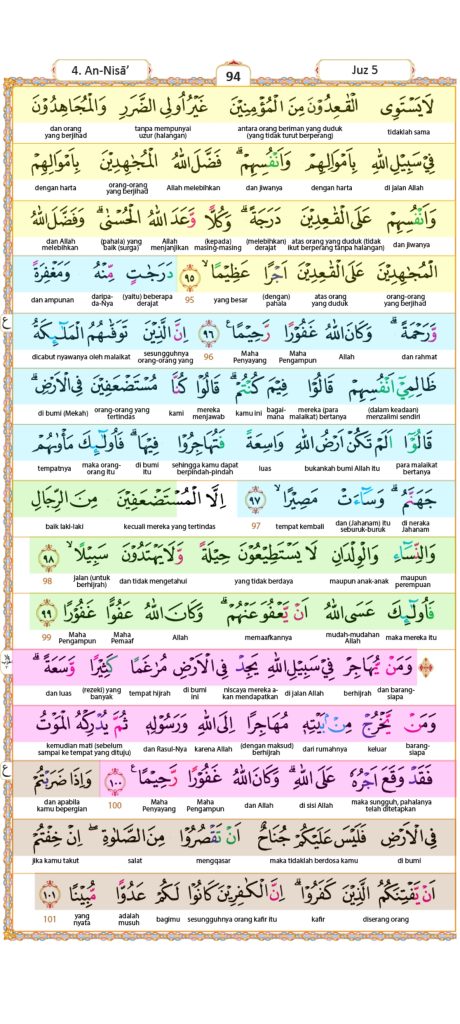 4. An-Nisā’
94
Juz 5
لَا يَسْتَوِى الْقٰعِدُوْنَ مِنَ الْمُؤْمِنِيْنَ غَيْرُ اُولِى الضَّرَرِ وَالْمُجَاهِدُوْنَ
tidaklah sama antara orang beriman yang duduk (yang tidak turut berperang) tanpa mempunyai uzur (halangan) dan orang yang berjihad
فِيْ سَبِيْلِ اللّٰهِ بِاَمْوَالِهِمْ وَاَنْفُسِهِمْۗ فَضَّلَ اللّٰهُ الْمُجٰهِدِيْنَ بِاَمْوَالِهِمْ
di jalan Allah dengan harta dan jiwanya Allah melebihkan orang-orang yang berjihad dengan harta
وَاَنْفُسِهِمْ عَلَى الْقٰعِدِيْنَ دَرَجَةًۗ وَكُلًّا وَّعَدَ اللّٰهُ الْحُسْنٰىۗ وَفَضَّلَ اللّٰهُ
dan jiwanya atas orang yang duduk (tidak ikut berperang tanpa halangan) (melebihkan) derajat (kepada) masing-masing Allah menjanjikan (pahala) yang baik (surga) dan Allah melebihkan
الْمُجٰهِدِيْنَ عَلَى الْقٰعِدِيْنَ اَجْرًا عَظِيْمًاۙ ٩٥ دَرَجٰتٍ مِّنْهُ وَمَغْفِرَةً
orang-orang yang berjihad atas orang yang duduk (dengan) pahala yang besar 95 (yaitu) beberapa derajat daripada-Nya dan ampunan
وَّرَحْمَةًۗ وَكَانَ اللّٰهُ غَفُوْرًا رَّحِيْمًاࣖ ٩٦ اِنَّ الَّذِيْنَ تَوَفّٰىهُمُ الْمَلٰۤىِٕكَةُ
dan rahmat Allah Maha Pengampun Maha Penyayang 96 sesungguhnya orang-orang yang dicabut nyawanya oleh malaikat
ظَالِمِيْٓ اَنْفُسِهِمْ قَالُوْا فِيْمَ كُنْتُمْۗ قَالُوْا كُنَّا مُسْتَضْعَفِيْنَ فِى الْاَرْضِۗ
(dalam keadaan) menzalimi sendiri mereka (para malaikat) bertanya bagaimana kamu ini mereka menjawab kami orang-orang yang tertindas di bumi (Mekah)
قَالُوْٓا اَلَمْ تَكُنْ اَرْضُ اللّٰهِ وَاسِعَةً فَتُهَاجِرُوْا فِيْهَاۗ فَاُولٰۤىِٕكَ مَأْوٰىهُمْ
para malaikat bertanya bukankah bumi Allah itu luas sehingga kamu dapat berpindah-pindah di bumi itu maka orang-orang itu tempatnya
جَهَنَّمُۗ وَسَاۤءَتْ مَصِيْرًاۙ ٩٧ اِلَّا الْمُسْتَضْعَفِيْنَ مِنَ الرِّجَالِ
di neraka Jahanam dan (Jahanam) itu seburuk-buruk tempat kembali 97 kecuali mereka yang tertindas baik laki-laki
وَالنِّسَاۤءِ وَالْوِلْدَانِ لَا يَسْتَطِيْعُوْنَ حِيْلَةً وَّلَا يَهْتَدُوْنَ سَبِيْلًاۙ ٩٨
maupun perempuan maupun anak-anak yang tidak berdaya dan tidak mengetahui jalan (untuk berhijrah) 98
فَاُولٰۤىِٕكَ عَسَى اللّٰهُ اَنْ يَّعْفُوَ عَنْهُمْۗ وَكَانَ اللّٰهُ عَفُوًّا غَفُوْرًا ٩٩
maka mereka itu mudah-mudahan Allah memaafkannya Allah Maha Pemaaf Maha Pengampun 99
وَمَنْ يُّهَاجِرْ فِيْ سَبِيْلِ اللّٰهِ يَجِدْ فِى الْاَرْضِ مُرٰغَمًا كَثِيْرًا وَّسَعَةًۗ
dan barang-siapa berhijrah di jalan Allah niscaya mereka akan mendapatkan di bumi ini tempat hijrah (rezeki) yang banyak dan luas
وَمَنْ يَّخْرُجْ مِنْۢ بَيْتِهٖ مُهَاجِرًا اِلَى اللّٰهِ وَرَسُوْلِهٖ ثُمَّ يُدْرِكْهُ الْمَوْتُ
barang-siapa keluar dari rumahnya (dengan maksud) berhijrah karena Allah dan Rasul-Nya kemudian mati (sebelum sampai ke tempat yang dituju)
فَقَدْ وَقَعَ اَجْرُهٗ عَلَى اللّٰهِۗ وَكَانَ اللّٰهُ غَفُوْرًا رَّحِيْمًاࣖ ١٠٠ وَاِذَا ضَرَبْتُمْ
maka sungguh, pahalanya telah ditetapkan di sisi Allah dan Allah Maha Pengampun Maha Penyayang 100 dan apabila kamu bepergian
فِى الْاَرْضِ فَلَيْسَ عَلَيْكُمْ جُنَاحٌ اَنْ تَقْصُرُوْا مِنَ الصَّلٰوةِۖ اِنْ خِفْتُمْ
di bumi maka tidaklah berdosa kamu mengqasar salat jika kamu takut
اَنْ يَّفْتِنَكُمُ الَّذِيْنَ كَفَرُوْاۗ اِنَّ الْكٰفِرِيْنَ كَانُوْا لَكُمْ عَدُوًّا مُّبِيْنًا ١٠١
diserang orang kafir sesungguhnya orang kafir itu bagimu adalah musuh yang nyata 101